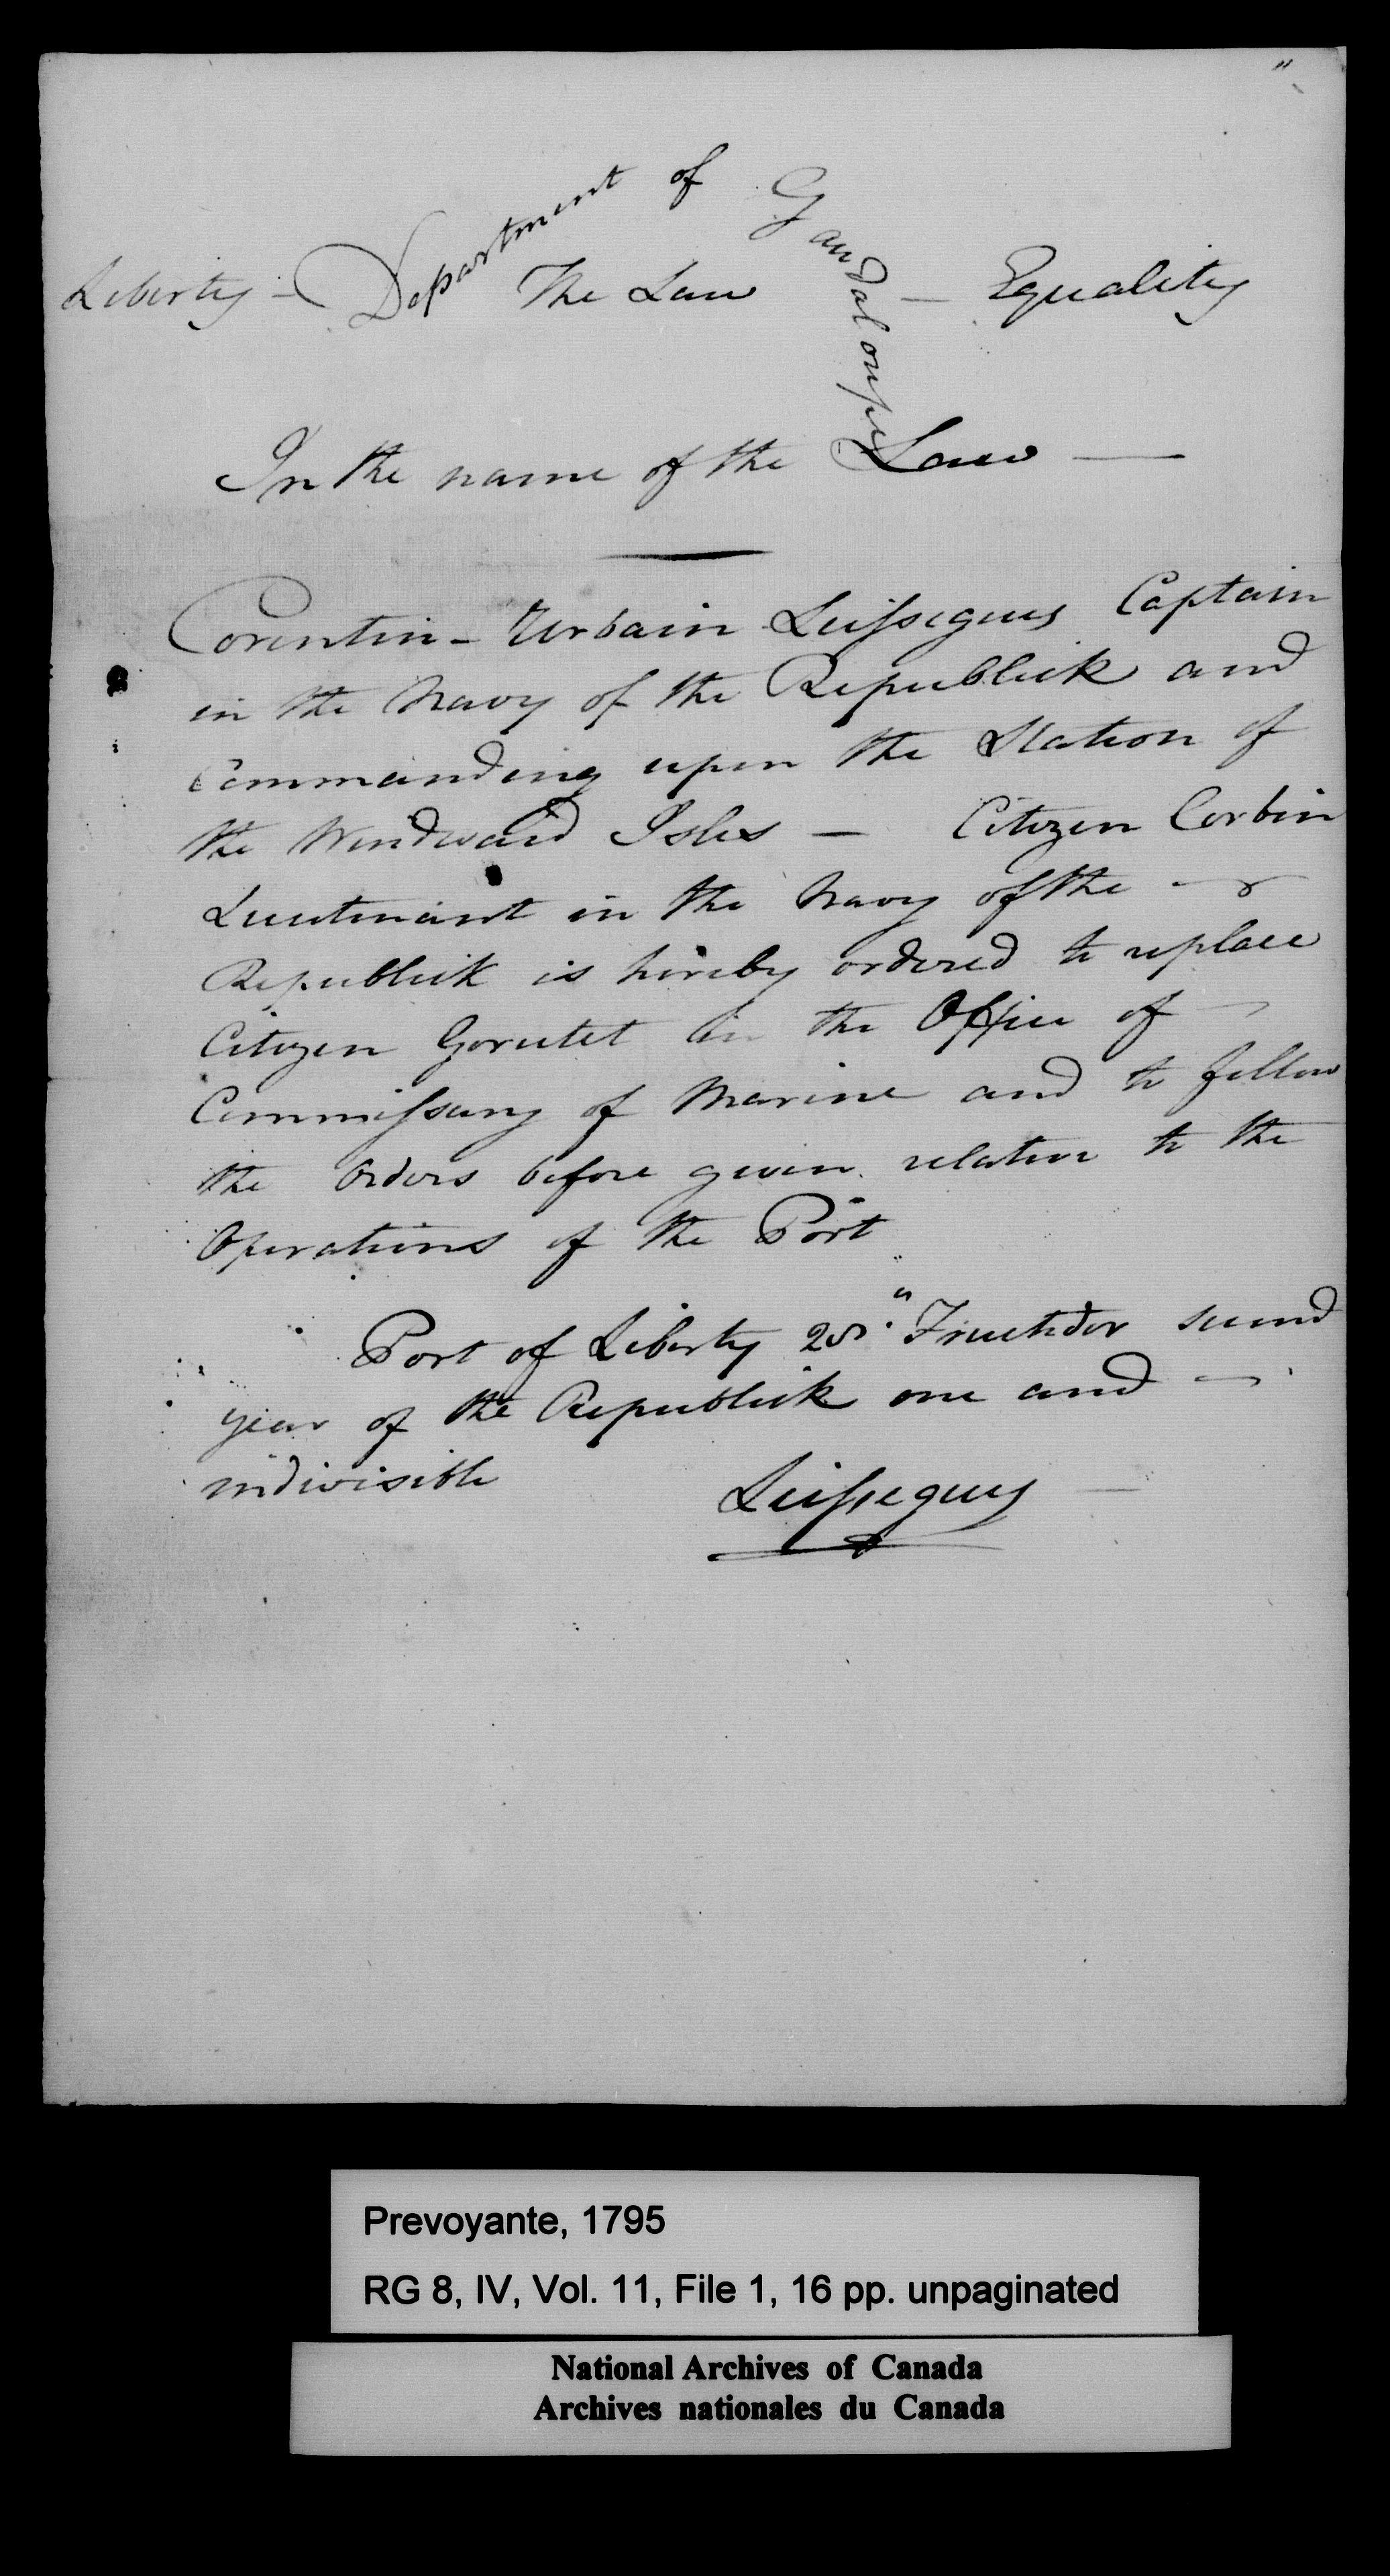 Department of Gaudaloupe
Liberty - The Law - Equality
In the name of the Law —
Corentin - Urbain Leissegues Captain
in the Navy of the Republick and
Commanding upon the Station of
the Windward Isles — Citizen Corbin
Lieutenant in the Navy of the —
Republick is hereby ordered to replace
Citizen in the Office of —
Commissary of Marine and to follow
the Orders before given relative to the
Operations of the Port
Port of Liberty 28" Fructidor second
year of the Republick one and —
indivisible
Leissegues —
Prevoyante, 1795
RG 8, IV, Vol. 11, File 1, 16 pp. unpaginated
National Archives of Canada
Archives nationales du Canada